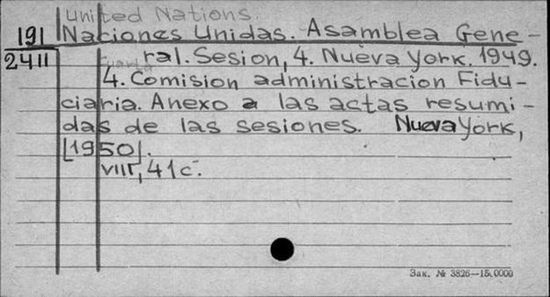 United Nations.
191
2411
Naciones Unidas. Asamblea Gene-
ral. Sesion, 4. Nueva York. 1949.
4. Comision administracion Fidu-
ciaria. Anexo a las actas resumi-
das de las sesiones. Nueva York,
[1950].
VIII, 41 c.
Зак. № 3826—15.0000